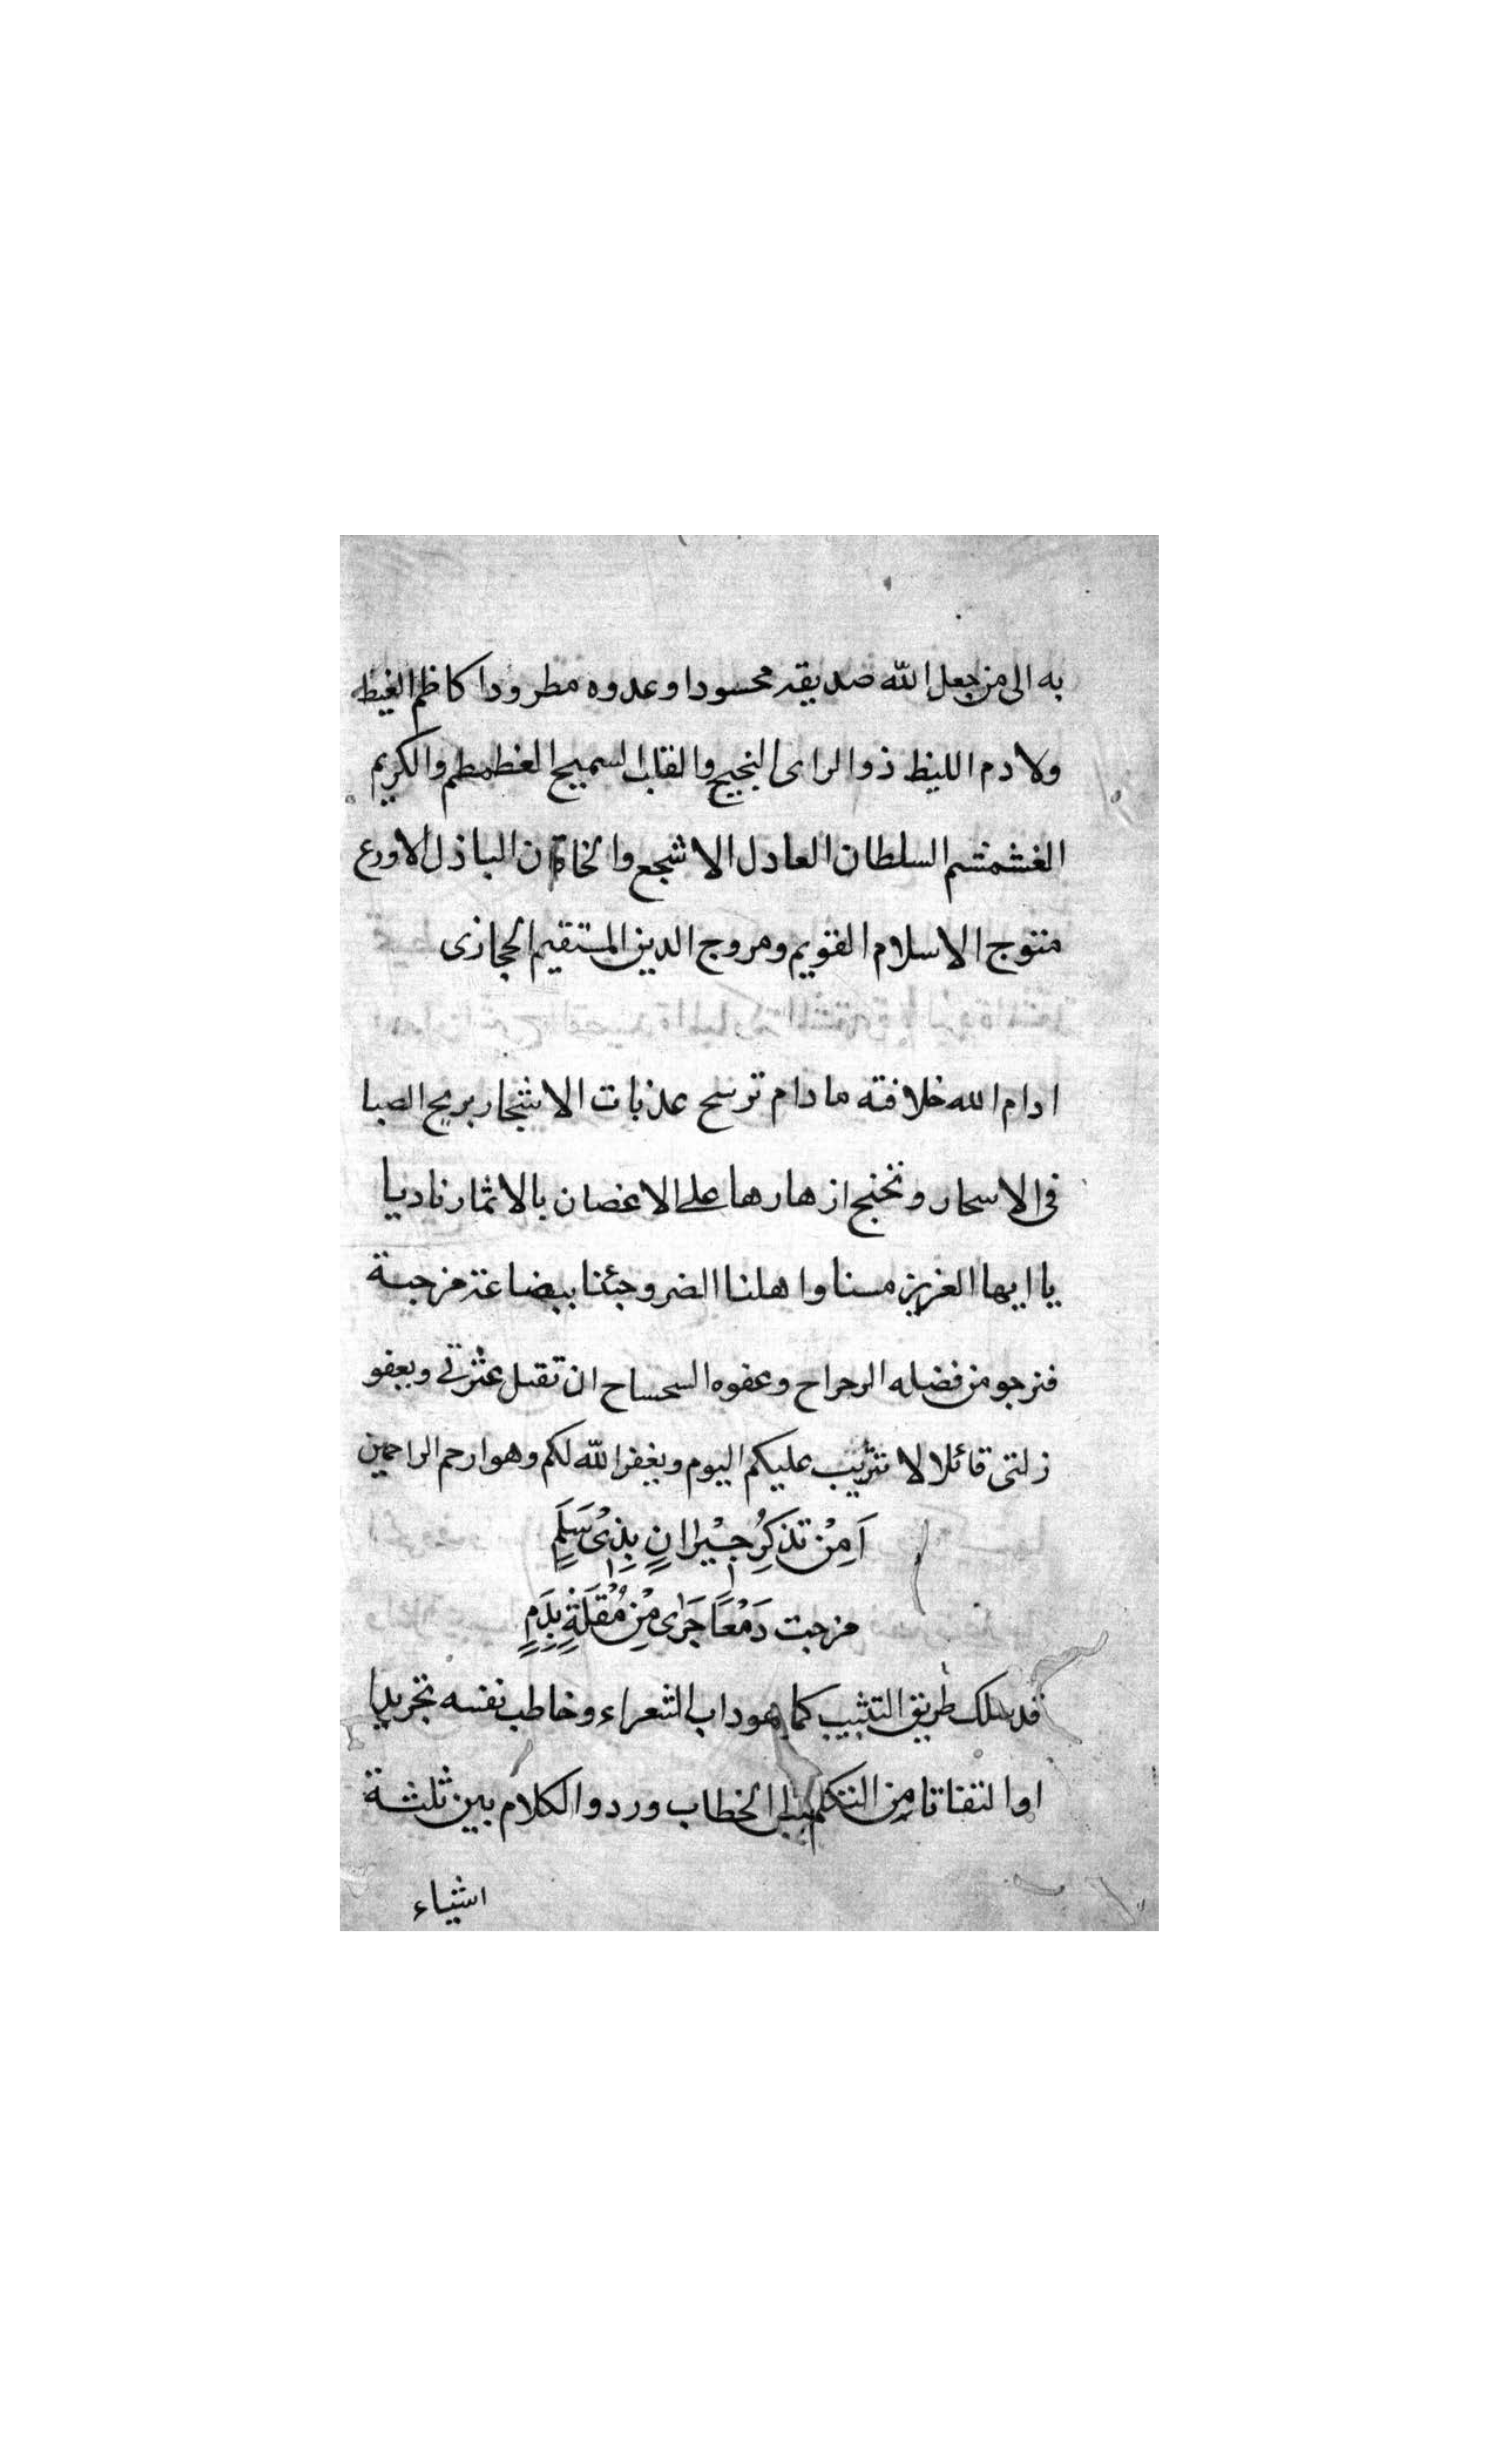 به الى من جعل الله صديقه محسودا وعدوه مطرودا كاظم الغيظ
ولادم الليظ ذو الراى النجيح والقلب السميح الغطمطم والكريم
الغشمشم السلطان العادل الاشجع والخاقان الباذل الاورع
متوج الاسلام القويم ومروج الدين المستقيم الحجازى
ادام الله خلافته ما دام ترسح عذبات الاشجار بريح الصبا
فى الاسحار وتخنج ازهارها على الاغصان بالاثمار ناديا
يا ايها العزيز مسنا واهلنا الضر وجئنا ببضاعة مزجية
فنرجو من فضله الرحراح وعفوه السحساح ان تقبل عثرتى ويعفو
زلتى قائلا لا تثريب عليكم اليوم ويغفر الله لكم وهو ارحم الراحمين
اَمِنْ تَذَكُّرِ جِيْرانٍ بِذِىْ سَلَمٍ
مزجت دَمْعًا جَرٰى مِنْ مُقْلَةٍ بِدَمٍ
قد سلك طريق التشبيب كما هو داب الشعراء وخاطب نفسه تجريدا
او التفاتا مِن التكلم الى الخطاب وردو الكلام بين ثلثة
اشياء